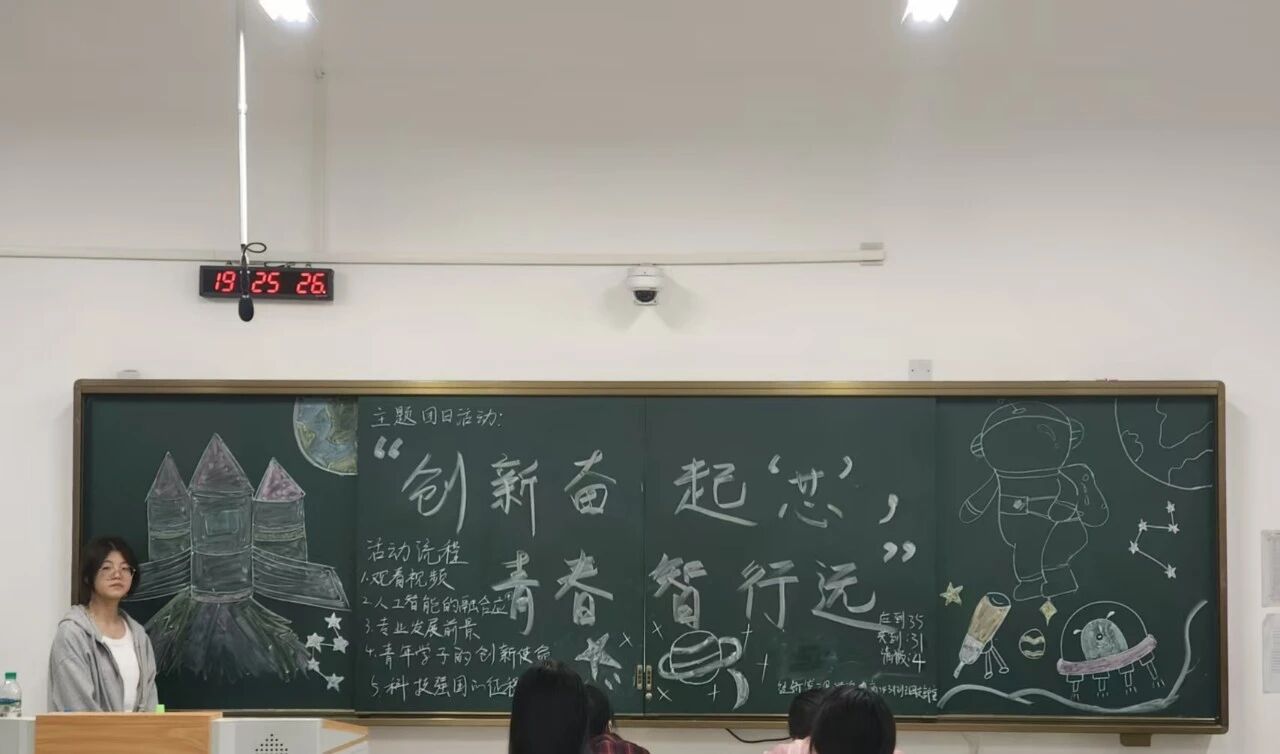 19 25 26
主题团日活动:
“创新奋起‘芯’,
青春智行远”
活动流程
1.观看视频
2.人工智能的融合应
3.专业发展前景
4.青年学子的创新使命
5.科技强国的征程
应到35
实到:31
请假:4